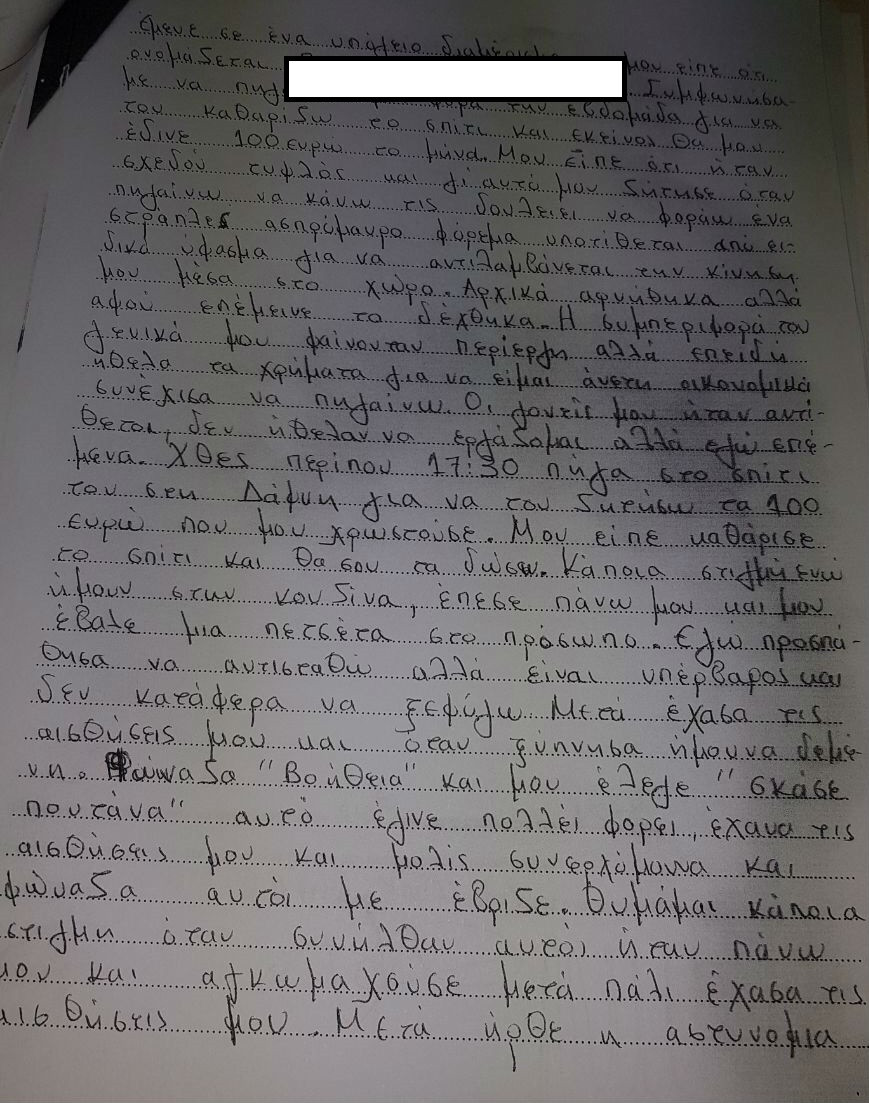 έμενε σε ένα υπόγειο διαμέρισμα μου είπε ότι
ονομάζεται Συμφωνήσα-
με να πηγ φορά την εβδομάδα για να
του καθαρίζω το σπίτι και εκείνος θα μου
έδινε 100 ευρω το μήνα. Μου είπε ότι ήταν
σχεδόν τυφλός και γι αυτό μου ζήτησε όταν
πηγαίνω να κάνω τις δουλειει να φοράω ένα
στράπλες ασπρόμαυρο φόρεμα υποτίθεται από ει-
δικό ύφασμα για να αντιλαμβάνεται την κίνηση
μου μέσα στο χώρο. Αρχικά αρνήθηκα αλλά
αφού επέμεινε το δέχθηκα. Η συμπεριφορά του
γενικά μου φαίνονταν περίεργη αλλά επειδή
ήθελα τα χρήματα για να είμαι άνετη οικονομικά
συνέχισα να πηγαίνω. Οι γονείς μου ήταν αντί-
θετοι, δεν ήθελαν να εργάζομαι αλλά εγώ επέ-
μενα. Χθες περίπου 17:30 πήγα στο σπίτι
του στη Δάφνη για να του ζητήσω τα 100
ευρώ που μου χρωστούσε. Μου είπε καθάρισε
το σπίτι και θα σου τα δώσω. Κάποια στιγμή ενώ
ήμουν στην κουζίνα, έπεσε πάνω μου και μου
έβαλε μια πετσέτα στο πρόσωπο. Εγώ προσπά-
θησα να αντισταθώ αλλά είναι υπέρβαρος και
δεν κατάφερα να ξεφύγω. Μετά έχασα τις
αισθήσεις μου και όταν ξύπνησα ήμουνα δεμέ-
νη. Φώναζα "Βοήθεια" και μου έλεγε "σκάσε
πουτανα" αυτό έγινε πολλέι φορει, έχανα τις
αισθήσεις μου και μολις συνερχόμουνα και
φώναζα αυτόι με έβριζε. Θυμάμαι κάποια
στιγμη όταν συνήλθαν αυτόι ήταν πάνω
μου και αγκωμαχούσε μετά πάλι έχασα τις
αισθήσεις μου. Μετά ήρθε η αστυνομια